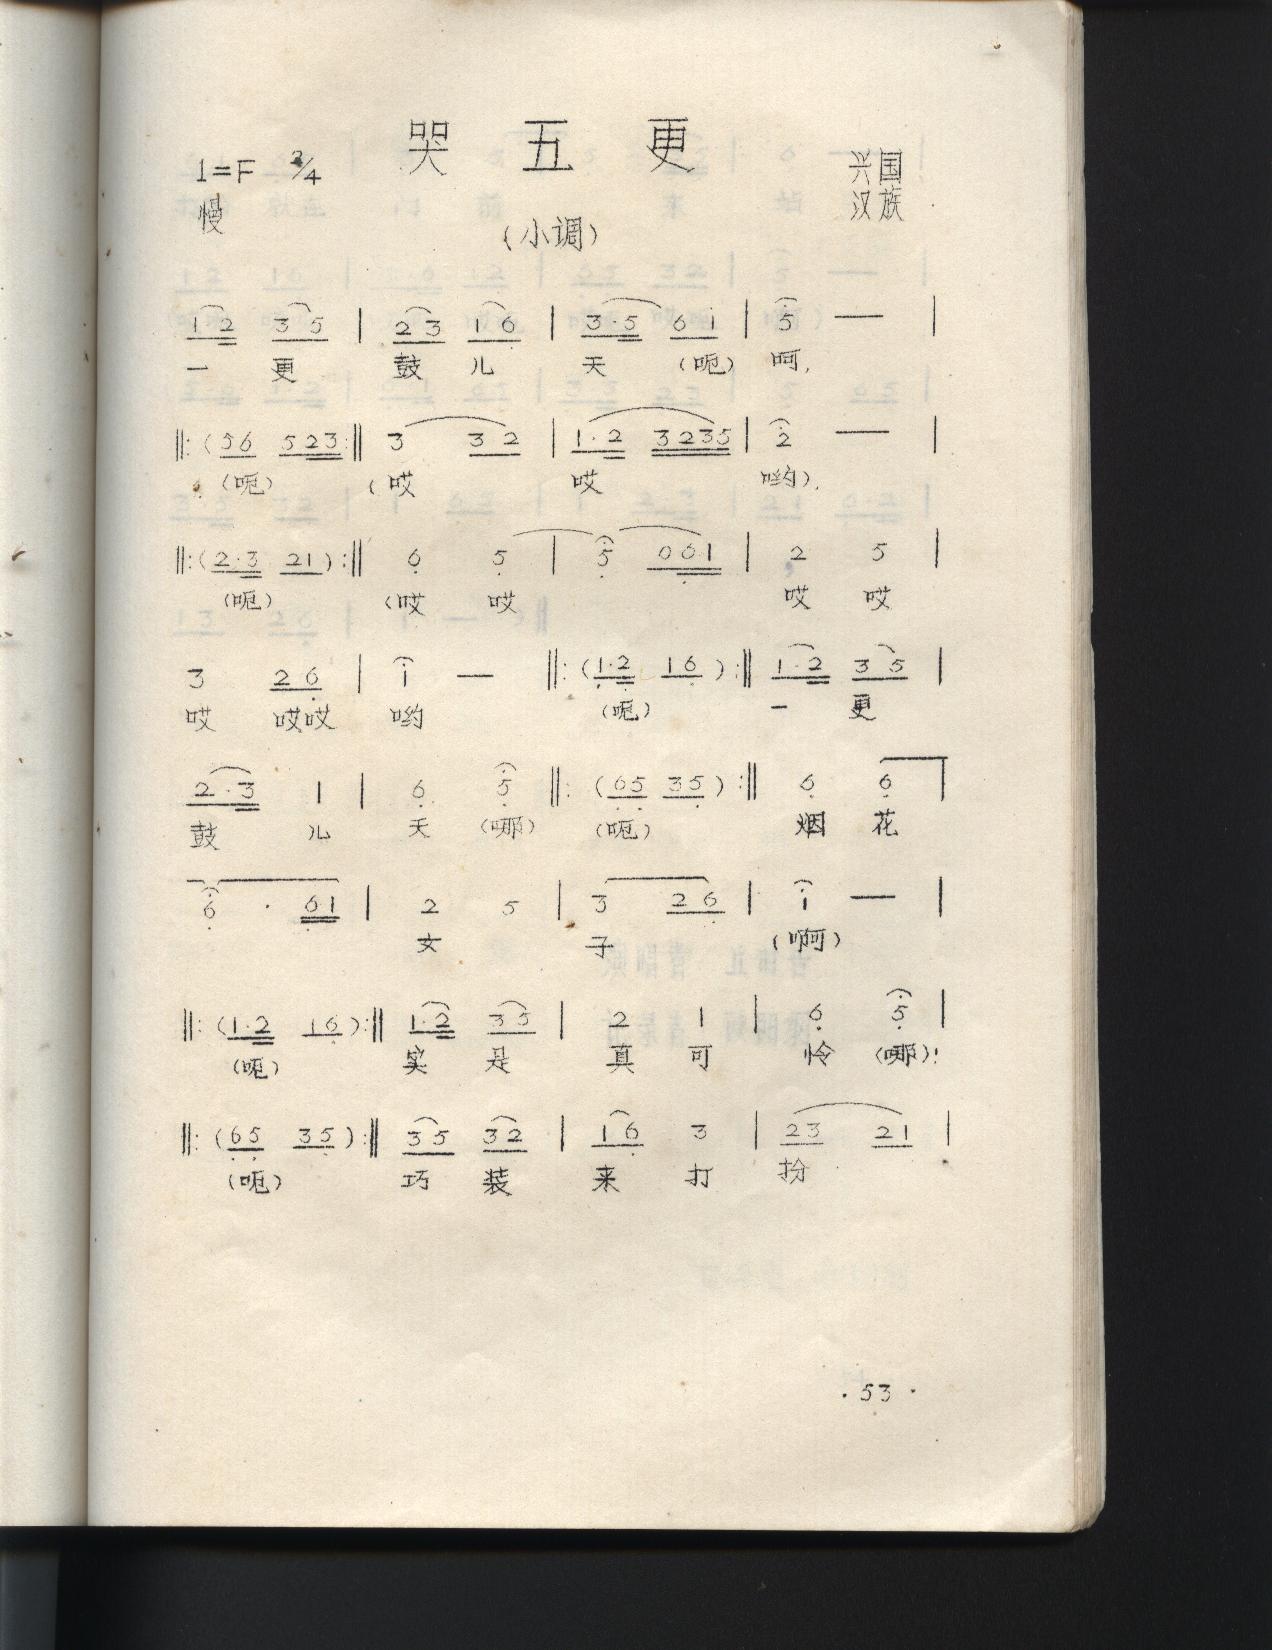 哭五更
1=F 2/4
慢
兴国
汉族
（小调）
1 2 3 5 | 2 3 1 6 | 3·5 6 1 | 5 — |
一 更 鼓 儿 天 （呃） 呵,
‖:（5 6 5 2 3 :‖ 3 3 2 | 1·2 3 2 3 5 | 2 — |
（呃） （哎 哎 哟）,
‖:（2·3 2 1）:‖ 6 5 | 5 0 6 1 | 2 5 |
（呃） （哎 哎 哎 哎
3 2 6 | 1 — ‖:（1·2 1 6）:‖ 1·2 3 5 |
哎 哎哎 哟 （呃） 一 更
2·3 1 | 6 5 ‖:（6 5 3 5）:‖ 6 6 |
鼓 儿 天 （哪） （呃） 烟 花
6 · 6 1 | 2 5 | 3 2 6 | 1 — |
女 子 （啊）
‖:（1·2 1 6）:‖ 1·2 3 5 | 2 1 | 6 5 |
（呃） 实 是 真 可 怜 （哪）!
‖:（6 5 3 5）:‖ 3 5 3 2 | 1 6 3 | 2 3 2 1 |
（呃） 巧 装 来 打 扮
·53·